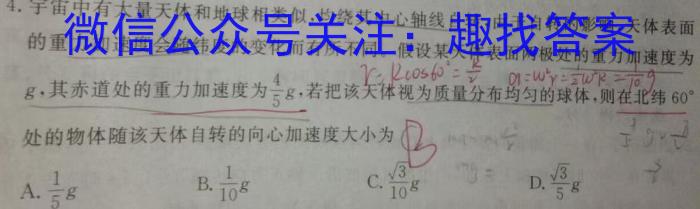 4. 宇宙中有大量天体和地球相类似,均绕其中心轴线
天体表面
微信公众号关注：趣找答案
的重力加速度会随纬度的变化而有所不同。假设某天体表面两极处的重力加速度为
r=Rcos60°=R/2 a=ω²r=½ω²R=1/10 g
g,其赤道处的重力加速度为4/5g,若把该天体视为质量分布均匀的球体,则在北纬60°
处的物体随该天体自转的向心加速度大小为 B
A. 1/5g B. 1/10g C. √3/10g D. √3/5g